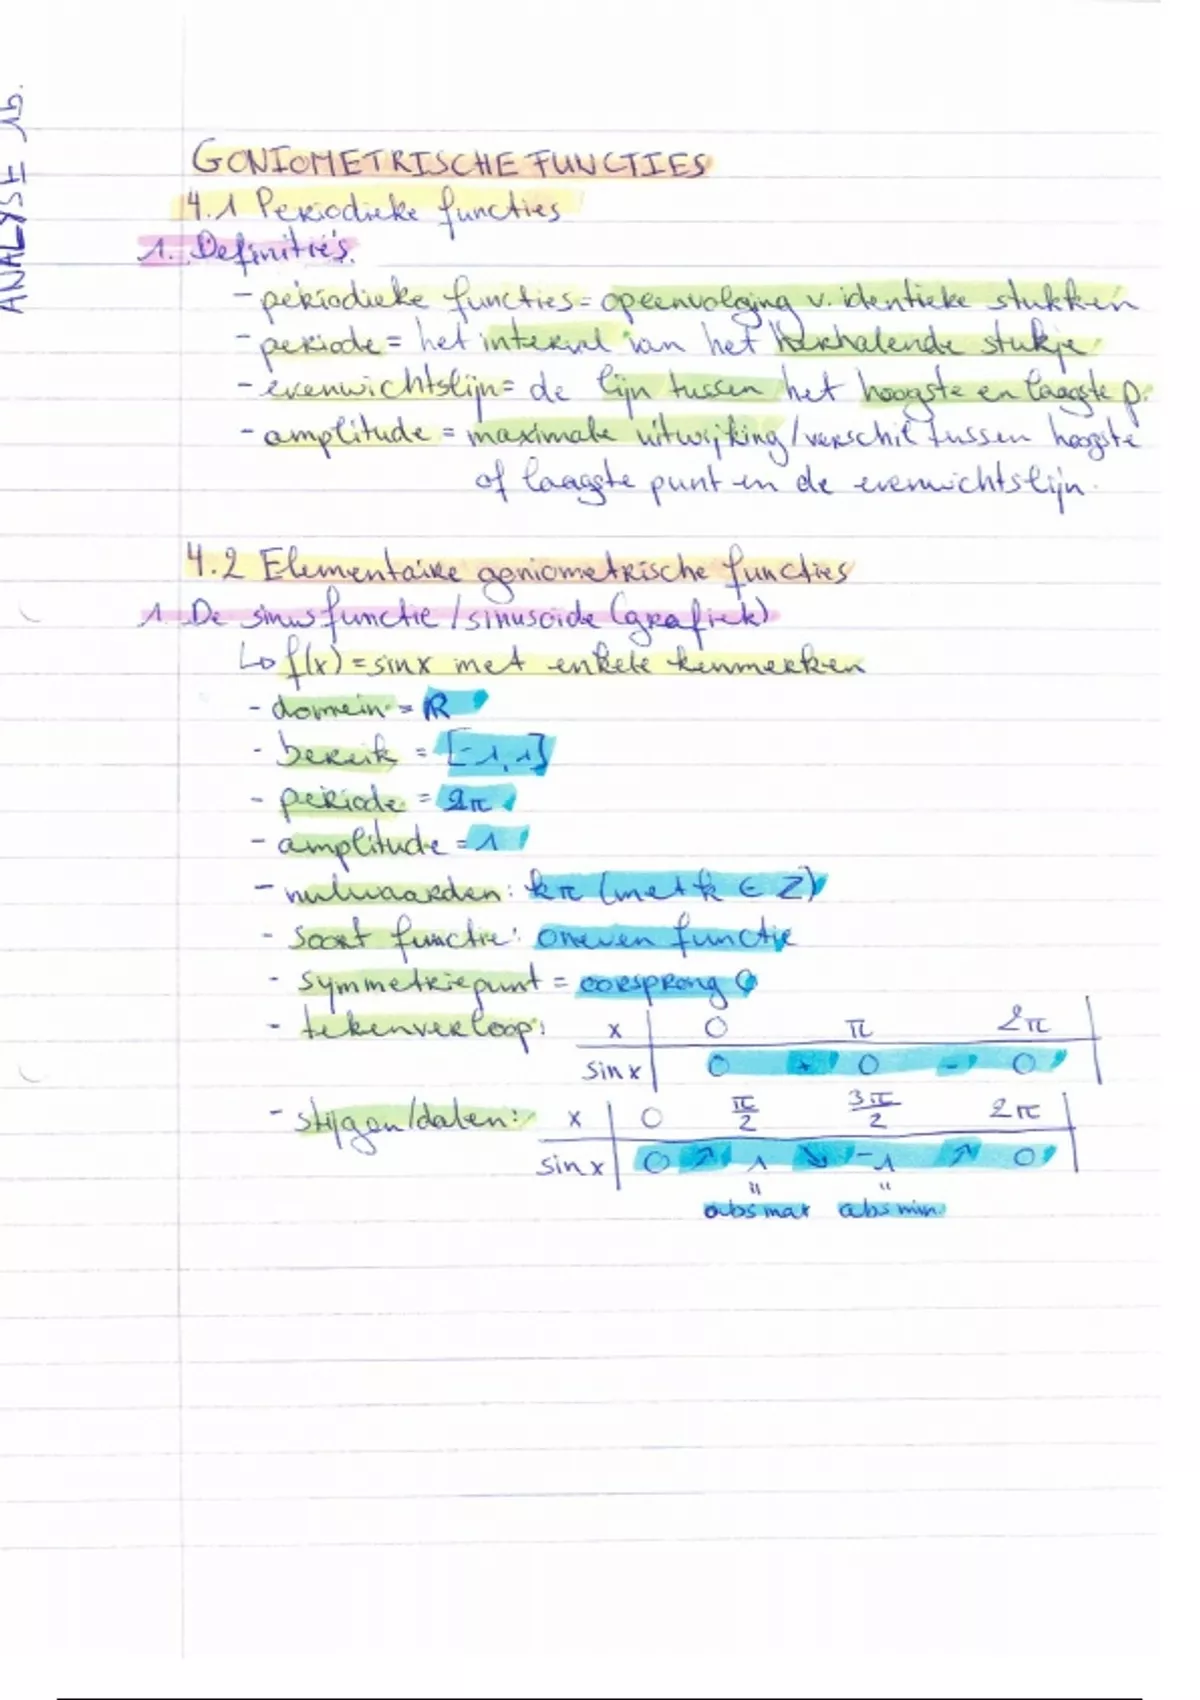 ANALYSE 1b.
GONIOMETRISCHE FUNCTIES
4.1 Periodieke functies
1. Definitie's.
- periodieke functies = opeenvolging v. identieke stukken
- periode = het interval van het herhalende stukje
- evenwichtslijn = de lijn tussen het hoogste en laagste p.
- amplitude = maximale uitwijking/verschil tussen hoogste
of laagste punt en de evenwichtslijn.
4.2 Elementaire goniometrische functies
1. De sinusfunctie / sinusoïde (grafiek)
↳ f(x) = sin x met enkele kenmerken
- domein = ℝ
- bereik = [-1, 1]
- periode = 2π
- amplitude = 1
- nulwaarden: kπ (met k ∈ Z)
- Soort functie: oneven functie
- symmetriepunt = oorsprong O
- tekenverloop: x | 0 π 2π
sin x | 0 + 0 - 0
- stijgen/dalen: x | 0 π/2 3π/2 2π
sin x | 0 ↗ 1 ↘ -1 ↗ 0
" "
abs max abs min.